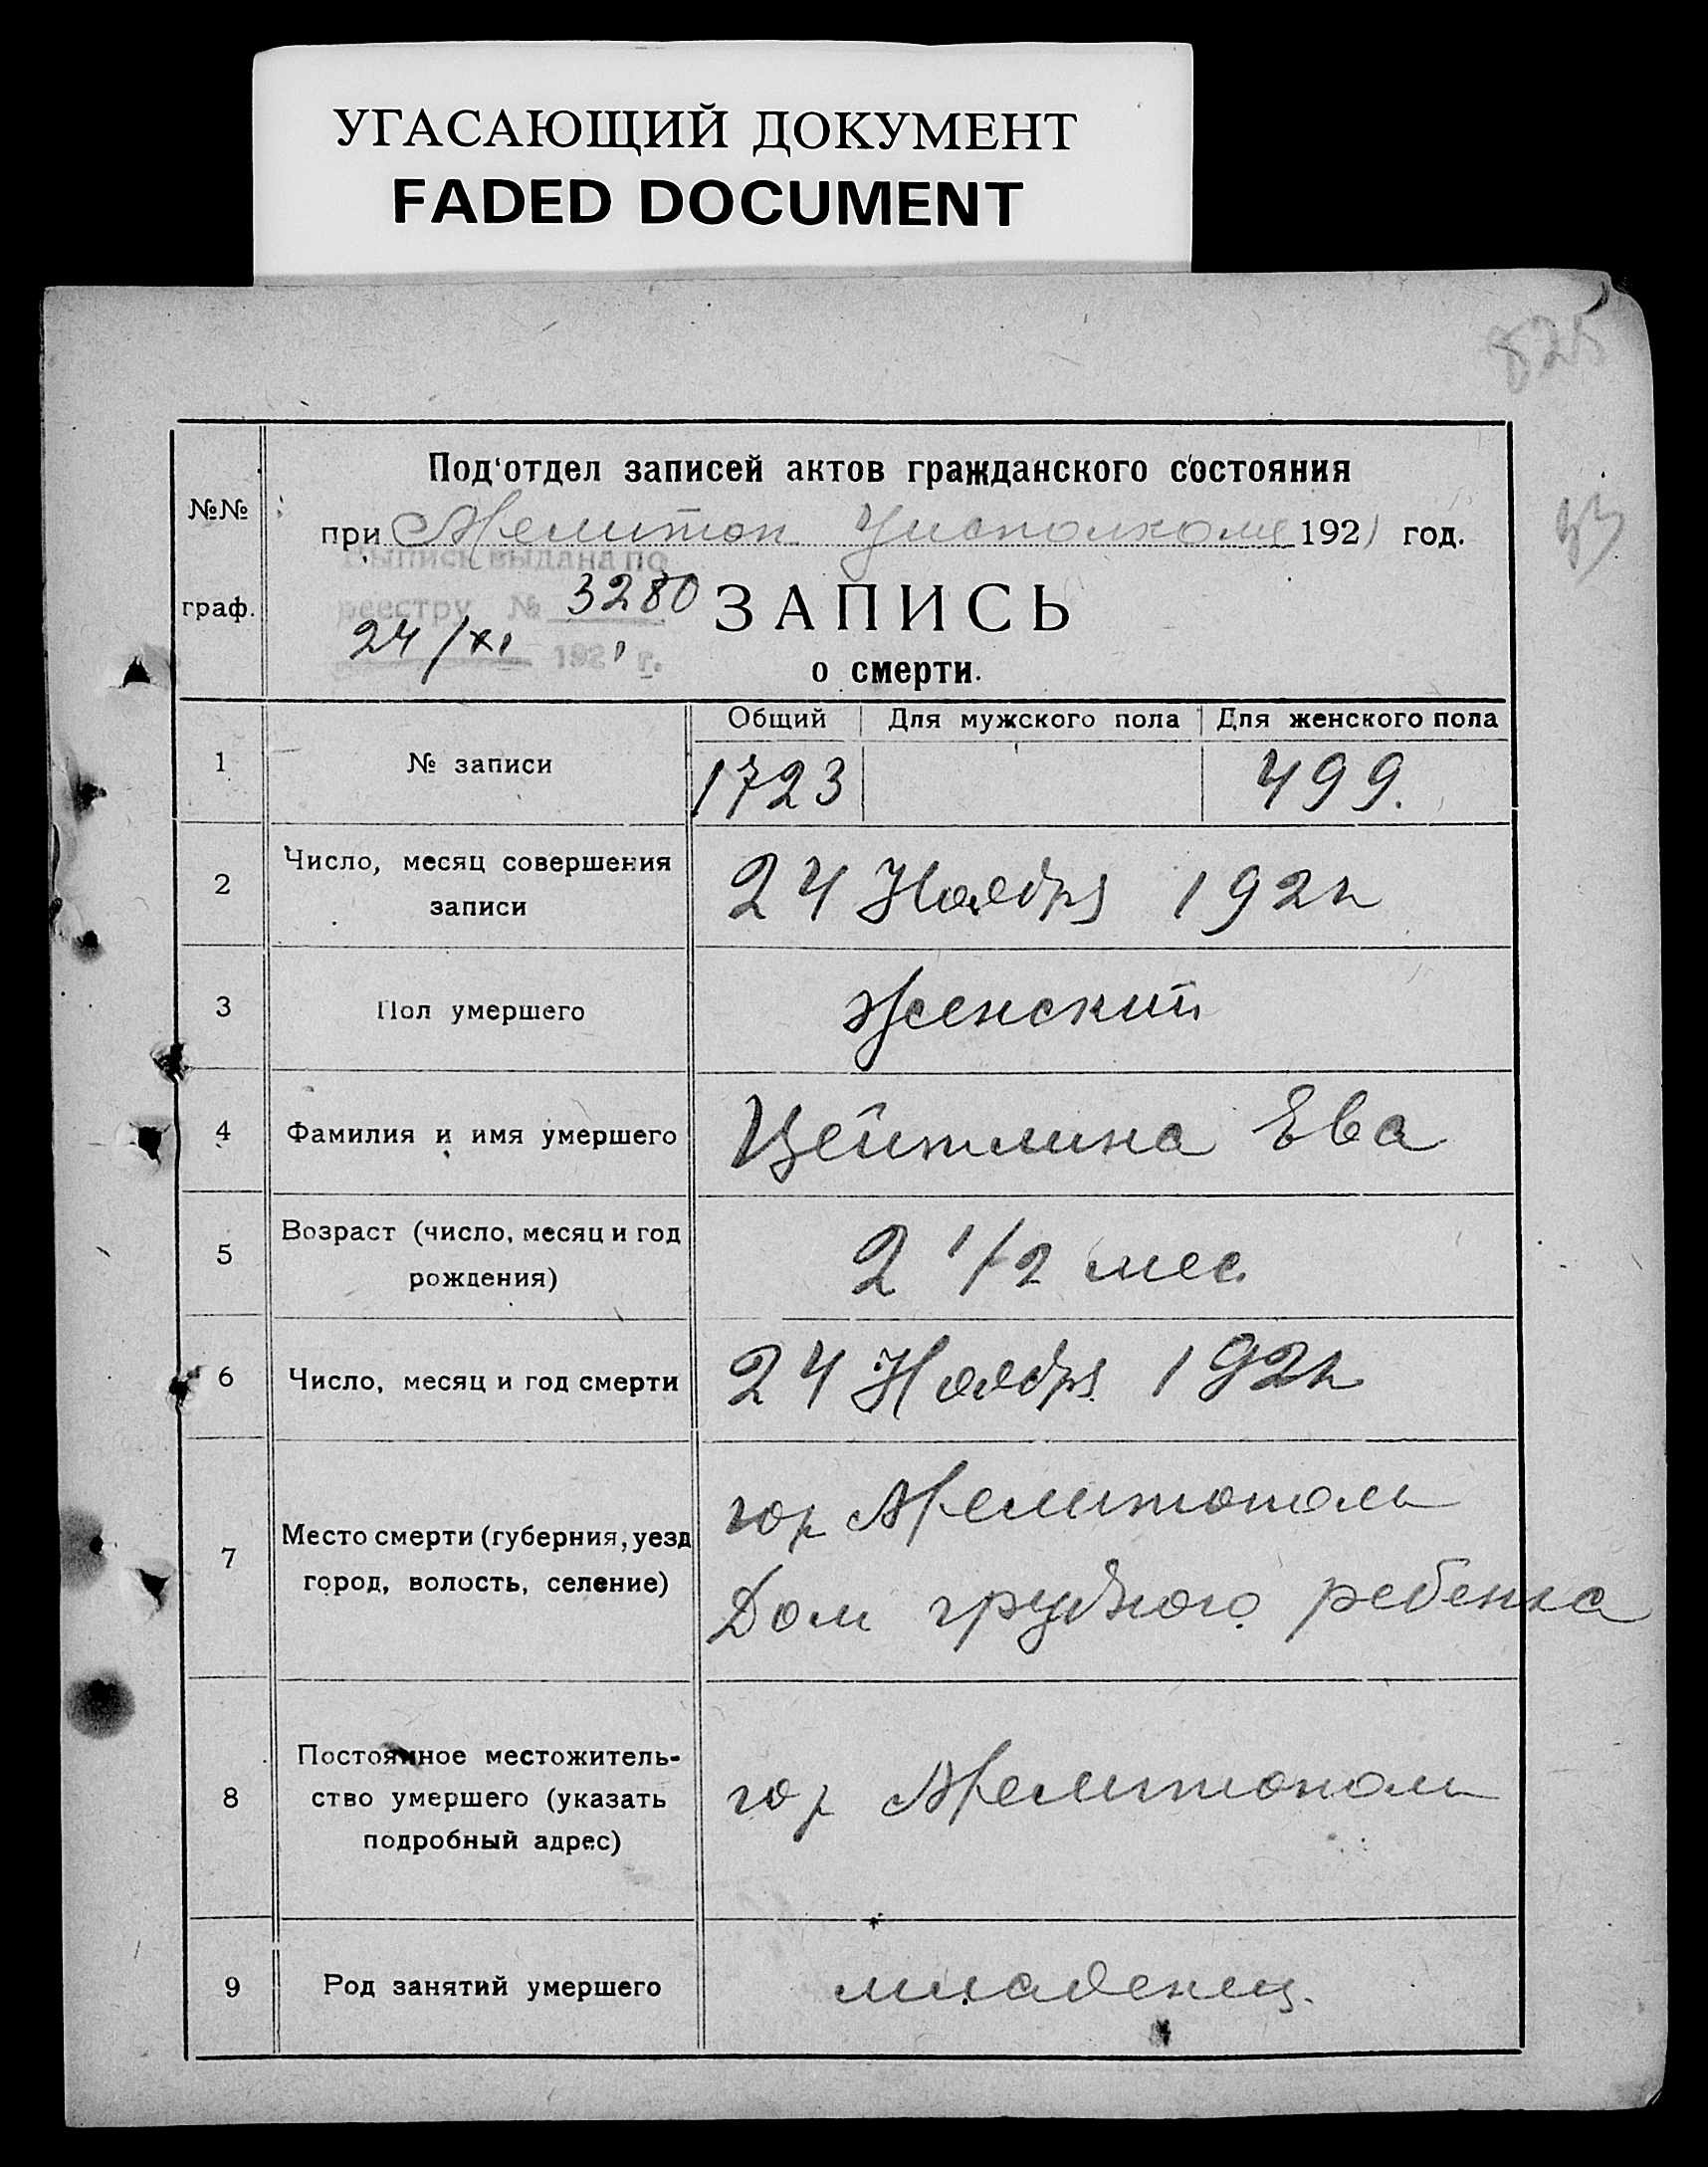 УГАСАЮЩИЙ ДОКУМЕНТ
FADED DOCUMENT
825
Под'отдел записей актов гражданского состояния
№№
при Мелитоп Уисполкоме 1921 год.
Выпись выдана по
реестру № 3280
граф.
ЗАПИСЬ
24/XI 1921 г.
о смерти.
Общий Для мужского пола Для женского пола
1 № записи 1723 499.
2 Число, месяц совершения
записи
24 Ноября 1921
3 Пол умершего Женский
4 Фамилия и имя умершего Цейтлина Ева
5 Возраст (число, месяц и год
рождения)
2 1/2 мес.
6 Число, месяц и год смерти 24 Ноября 1921
7 Место смерти (губерния, уезд
город, волость, селение)
гор Мелитополь
Дом грудного ребенка
8 Постоянное местожитель-
ство умершего (указать
подробный адрес)
гор Мелитополь
9 Род занятий умершего младенец.